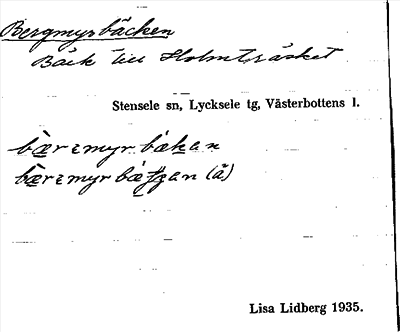 Bergmyrbäcken
Bäck till Holmträsket
Stensele sn, Lycksele tg, Västerbottens l.
bærɛmyrbækan
bærɛmyrbætʒan (å)
Lisa Lidberg 1935.